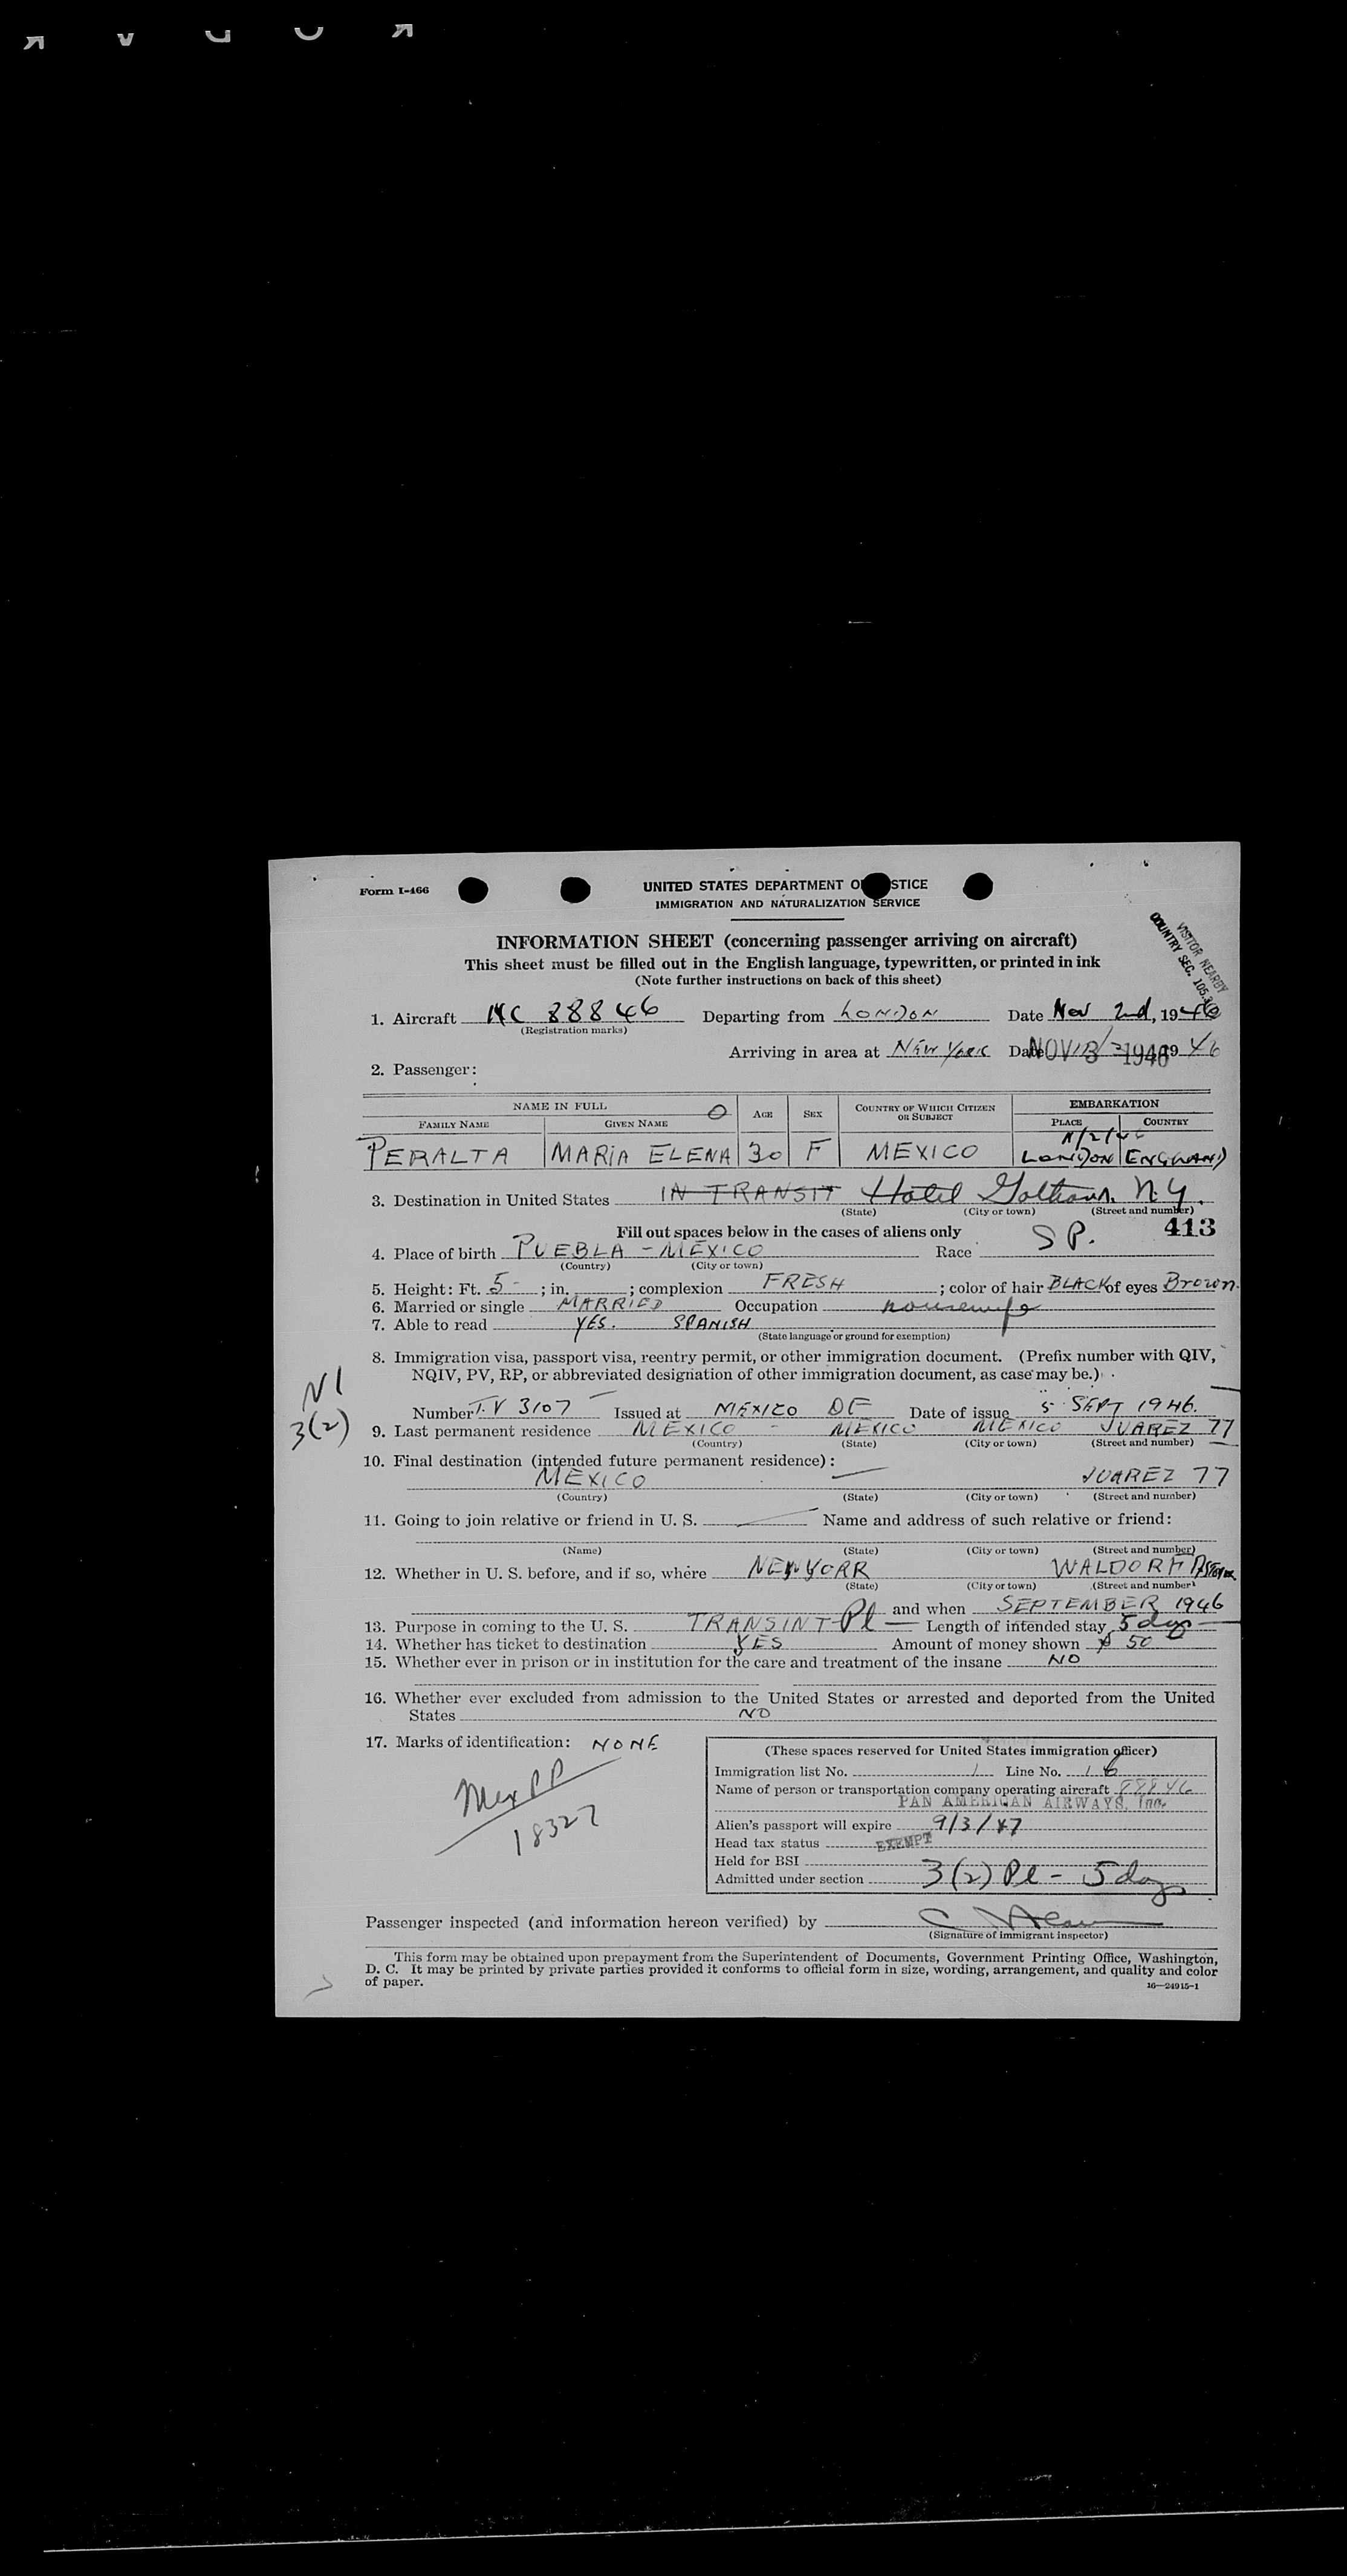 Form I-466
UNITED STATES DEPARTMENT O STICE
IMMIGRATION AND NATURALIZATION SERVICE
INFORMATION SHEET (concerning passenger arriving on aircraft)
This sheet must be filled out in the English language, typewritten, or printed in ink
(Note further instructions on back of this sheet)
VISITOR NEARBY
COUNTRY SEC. 105.3
1. Aircraft NC 88846 Departing from LONDON Date Nov 2nd, 1946
(Registration marks)
Arriving in area at New York Date NOV 1946 1946
2. Passenger:
NAME IN FULL AGE SEX COUNTRY OF WHICH CITIZEN OR SUBJECT EMBARKATION
FAMILY NAME GIVEN NAME PLACE COUNTRY
11/2/46
PERALTA MARIA ELENA 30 F MEXICO LONDON ENGLAND
3. Destination in United States IN TRANSIT Hotel N.Y.
(State) (City or town) (Street and number)
Fill out spaces below in the cases of aliens only 413
4. Place of birth PUEBLA - MEXICO Race SP.
(Country) (City or town)
5. Height: Ft. 5 ; in. ; complexion FRESH ; color of hair BLACK of eyes Brown.
6. Married or single MARRIED Occupation housewife
7. Able to read YES. SPANISH
(State language or ground for exemption)
8. Immigration visa, passport visa, reentry permit, or other immigration document. (Prefix number with QIV,
NQIV, PV, RP, or abbreviated designation of other immigration document, as case may be.)
NI
3(2)
Number T.V 3107 Issued at MEXICO DF Date of issue 5 SEPT 1946.
9. Last permanent residence MEXICO - MEXICO MEXICO JUAREZ 77
(Country) (State) (City or town) (Street and number)
10. Final destination (intended future permanent residence):
MEXICO JUAREZ 77
(Country) (State) (City or town) (Street and number)
11. Going to join relative or friend in U. S. Name and address of such relative or friend:
(Name) (State) (City or town) (Street and number)
12. Whether in U. S. before, and if so, where NEW YORK WALDORF
(State) (City or town) (Street and number)
and when SEPTEMBER 1946
13. Purpose in coming to the U. S. TRANSINT Pl Length of intended stay 5 days
14. Whether has ticket to destination YES Amount of money shown $ 50
15. Whether ever in prison or in institution for the care and treatment of the insane NO
16. Whether ever excluded from admission to the United States or arrested and deported from the United
States NO
17. Marks of identification: NONE
Mex PP
18327
(These spaces reserved for United States immigration officer)
Immigration list No. 1 Line No. 16
Name of person or transportation company operating aircraft 88846
PAN AMERICAN AIRWAYS, Inc.
Alien's passport will expire 9/3/47
Head tax status EXEMPT
Held for BSI
Admitted under section 3(2) Pl - 5 days
Passenger inspected (and information hereon verified) by
(Signature of immigrant inspector)
This form may be obtained upon prepayment from the Superintendent of Documents, Government Printing Office, Washington,
D. C. It may be printed by private parties provided it conforms to official form in size, wording, arrangement, and quality and color
of paper.
16—24915-1